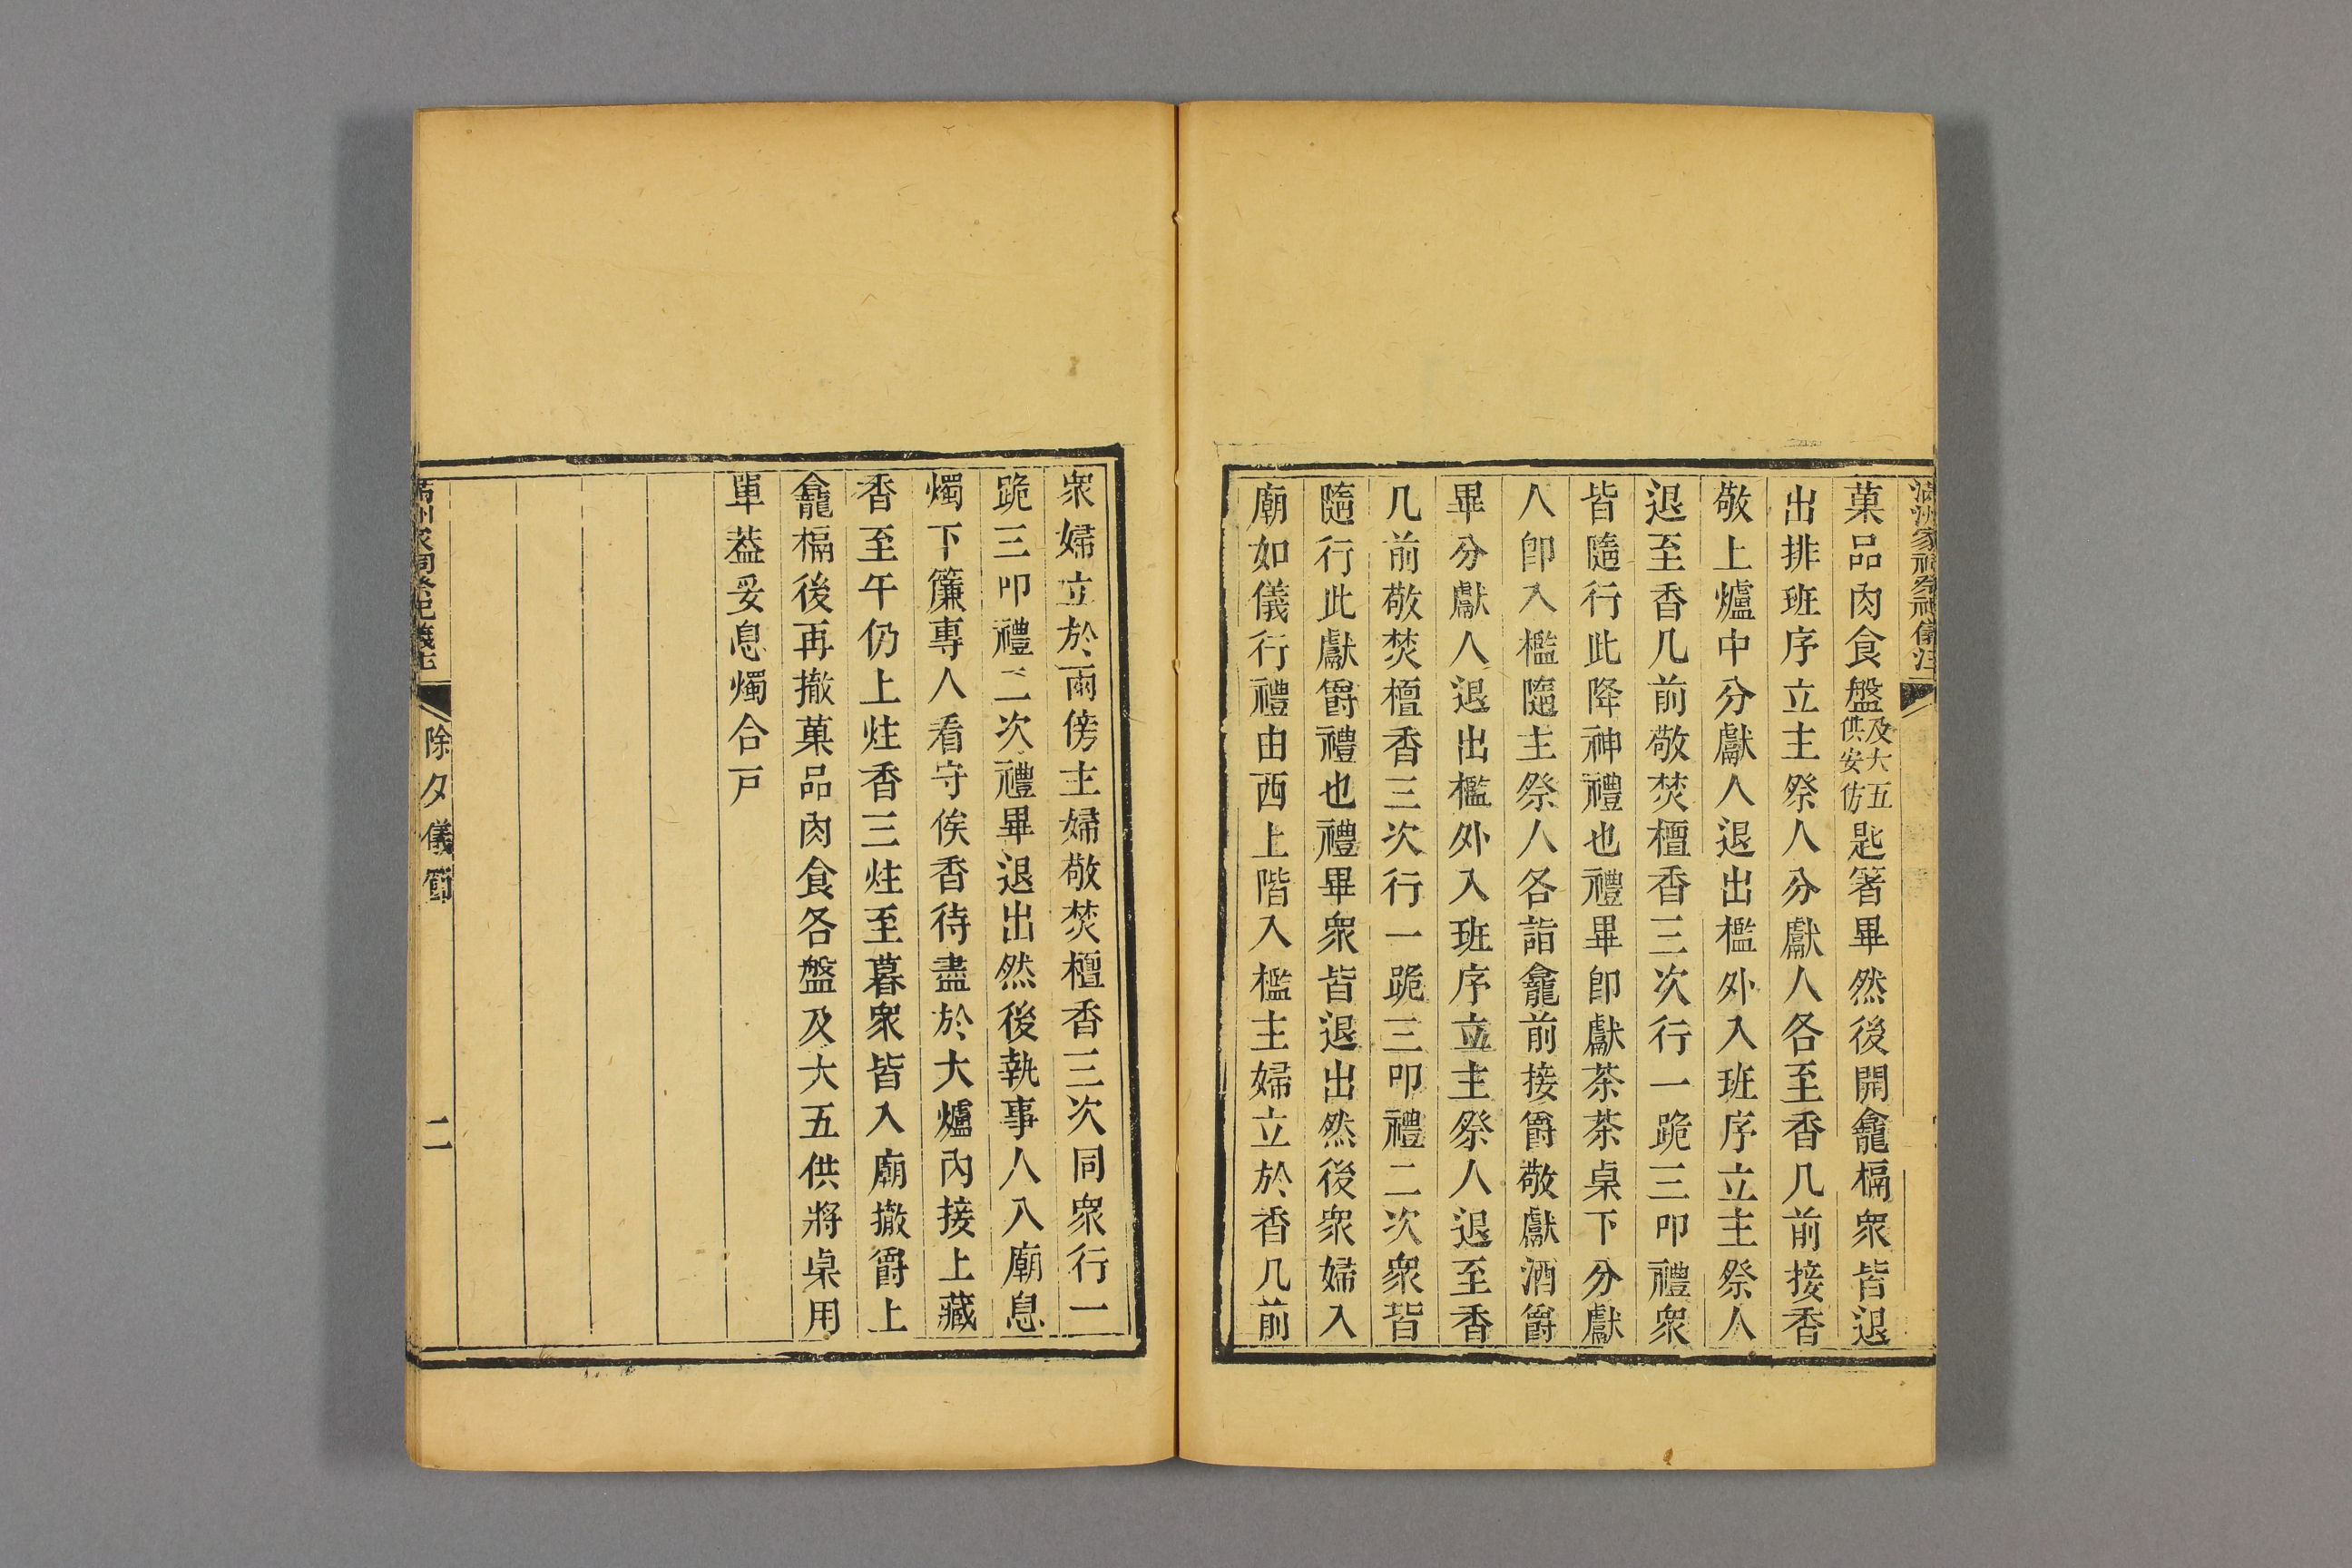 滿洲家祠祭祀儀注
菓品肉食盤及大五供安仿匙箸畢然後開龕槅衆皆退
出排班序立主祭人分獻人各至香几前接香
敬上爐中分獻人退出檻外入班序立主祭人
退至香几前敬焚檀香三次行一跪三叩禮衆
皆隨行此降神禮也禮畢卽獻茶茶桌下分獻
人卽入檻隨主祭人各詣龕前接爵敬獻酒爵
畢分獻人退出檻外入班序立主祭人退至香
几前敬焚檀香三次行一跪三叩禮二次衆皆
隨行此獻爵禮也禮畢衆皆退出然後衆婦入
廟如儀行禮由西上階入檻主婦立於香几前
衆婦立於兩傍主婦敬焚檀香三次同衆行一
跪三叩禮二次禮畢退出然後執事人入廟息
燭下簾專人看守俟香待盡於大爐內接上藏
香至午仍上炷香三炷至暮衆皆入廟撤爵上
龕槅後再撤菓品肉食各盤及大五供將桌用
單葢妥息燭合戸
滿洲家祠祭祀儀注 除夕儀節 二